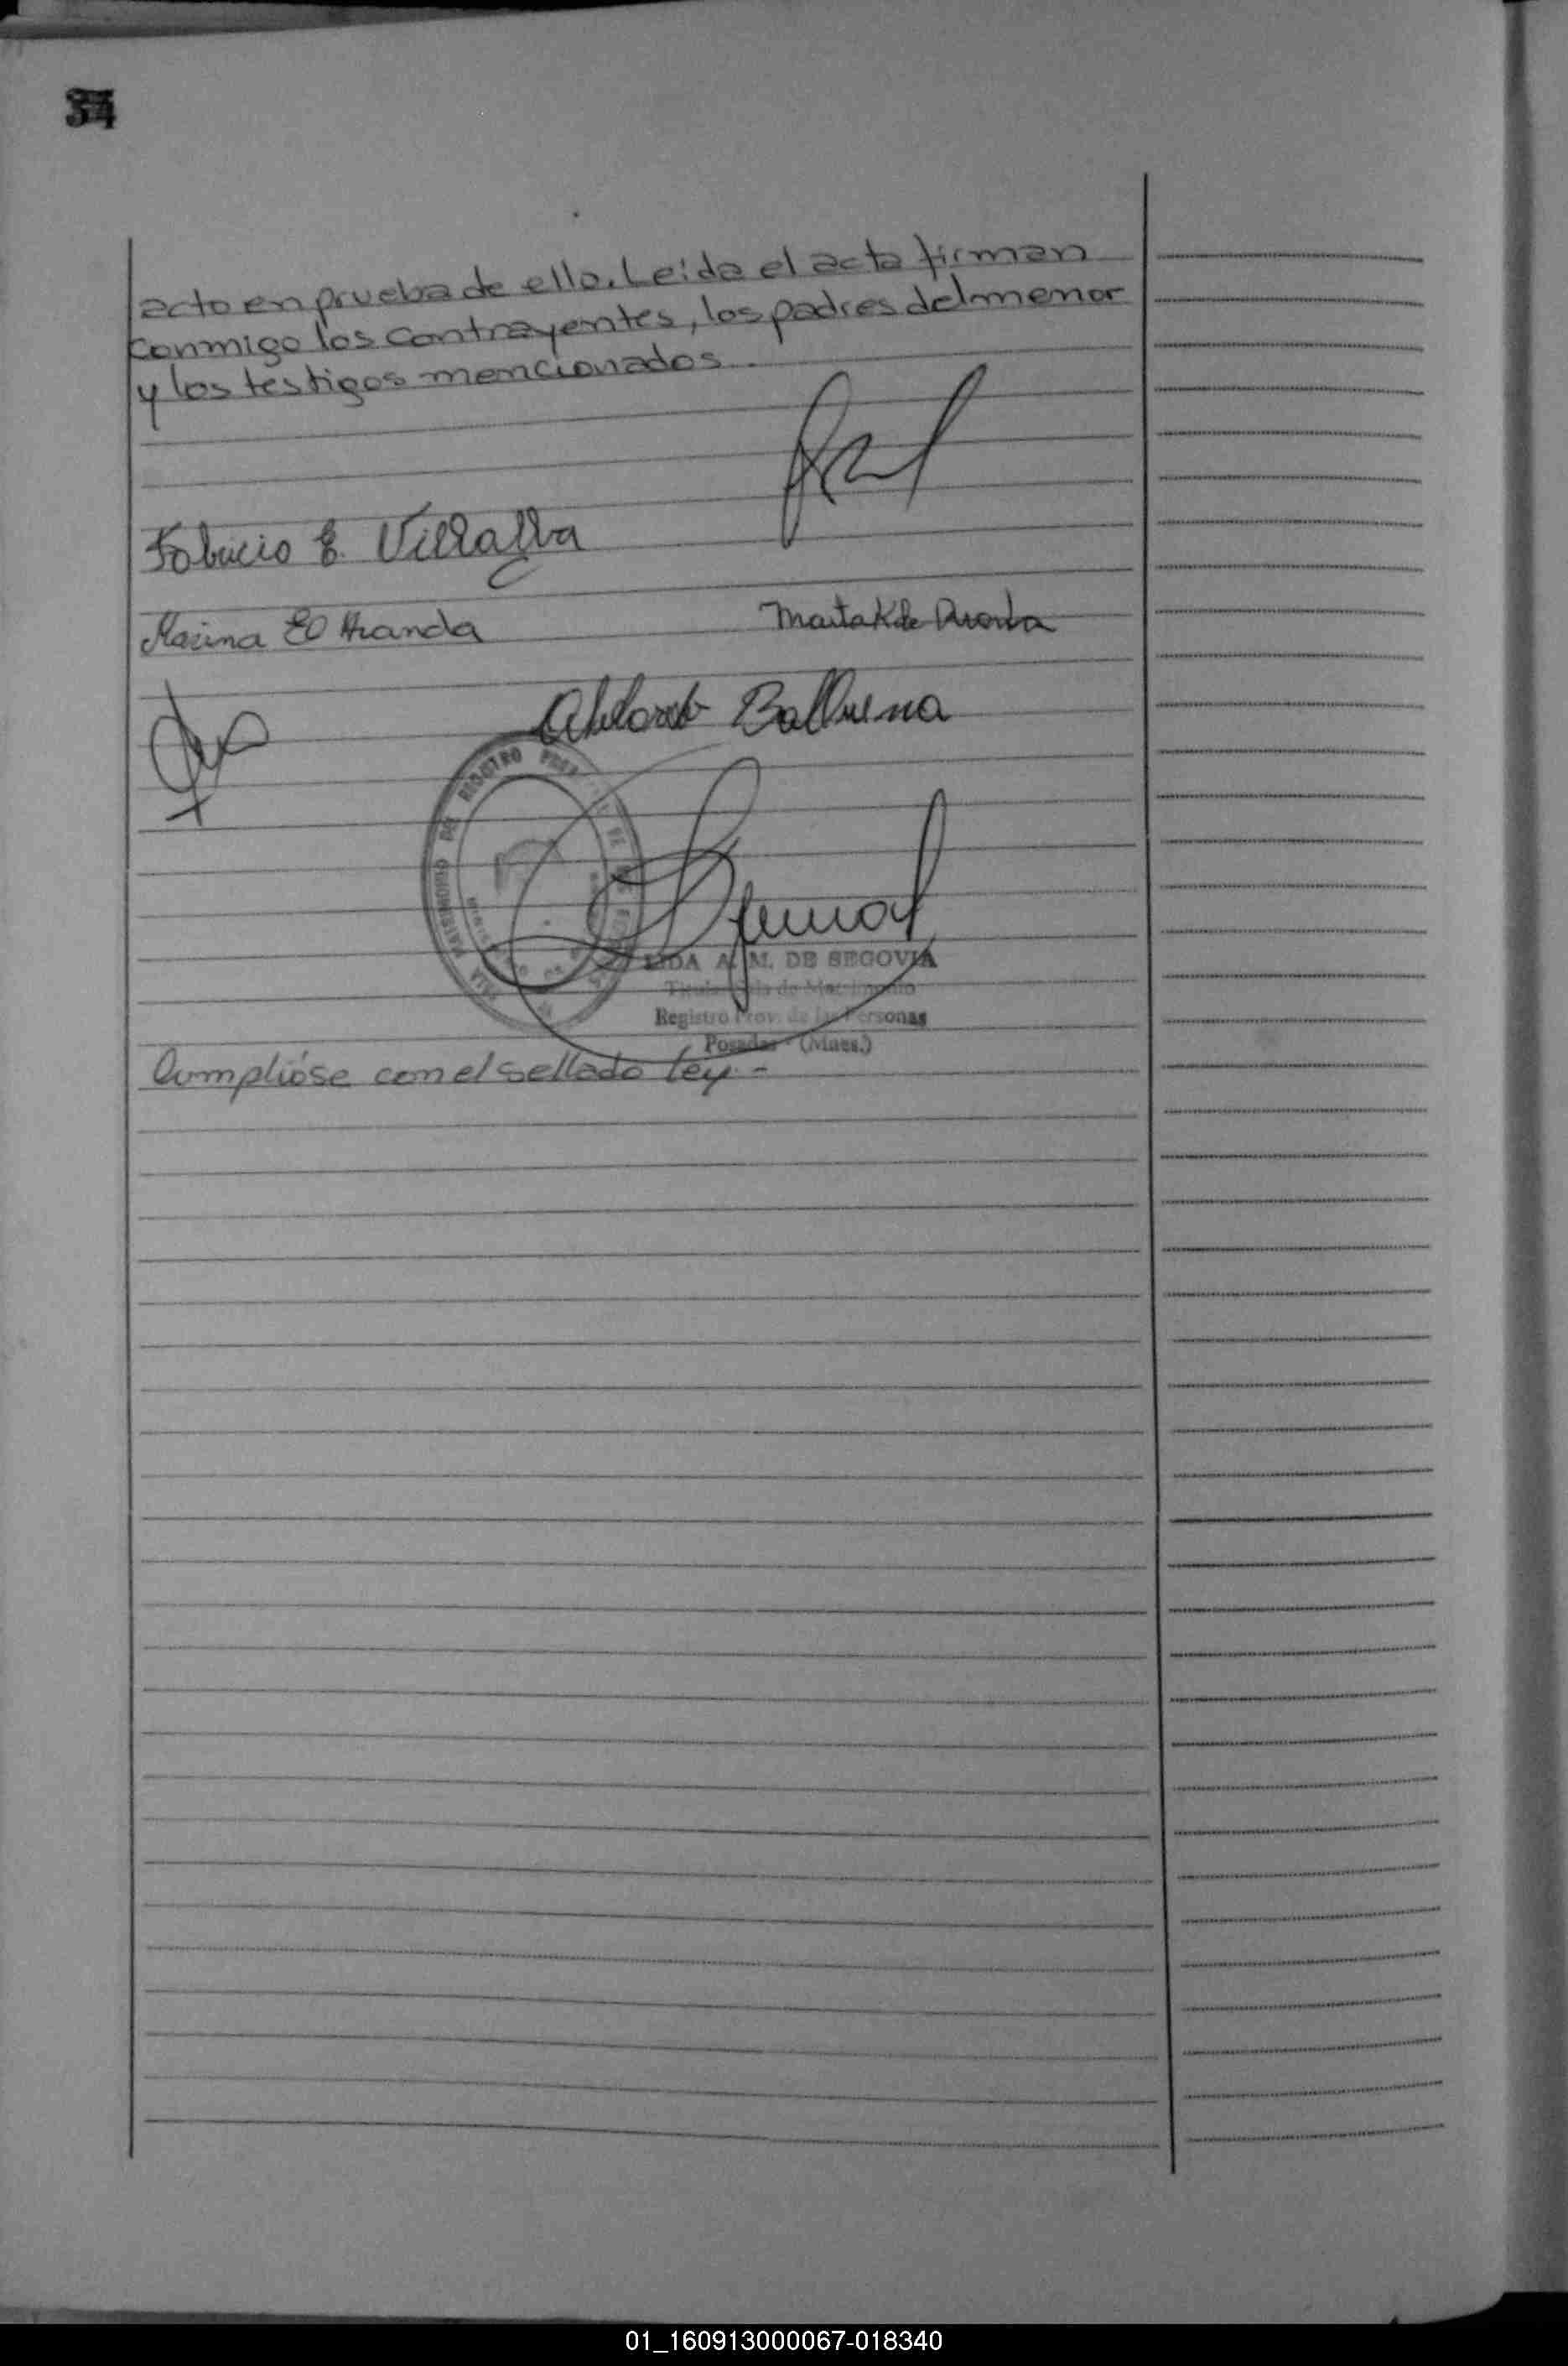 acto en prueba de ello. Leida el acta firman
conmigo los contrayentes, los padres del menor
y los testigos mencionados
Fabricio E. Villalba
Marina E Aranda
Marta K de
Abelardo Balbuena
REGISTRO
LIDA A. M. DE SEGOVIA
Titular Sala de Matrimonio
Registro Prov. de las Personas
Posadas - (Mnes.)
Cumplióse con el sellado ley.-
01_160913000067-018340